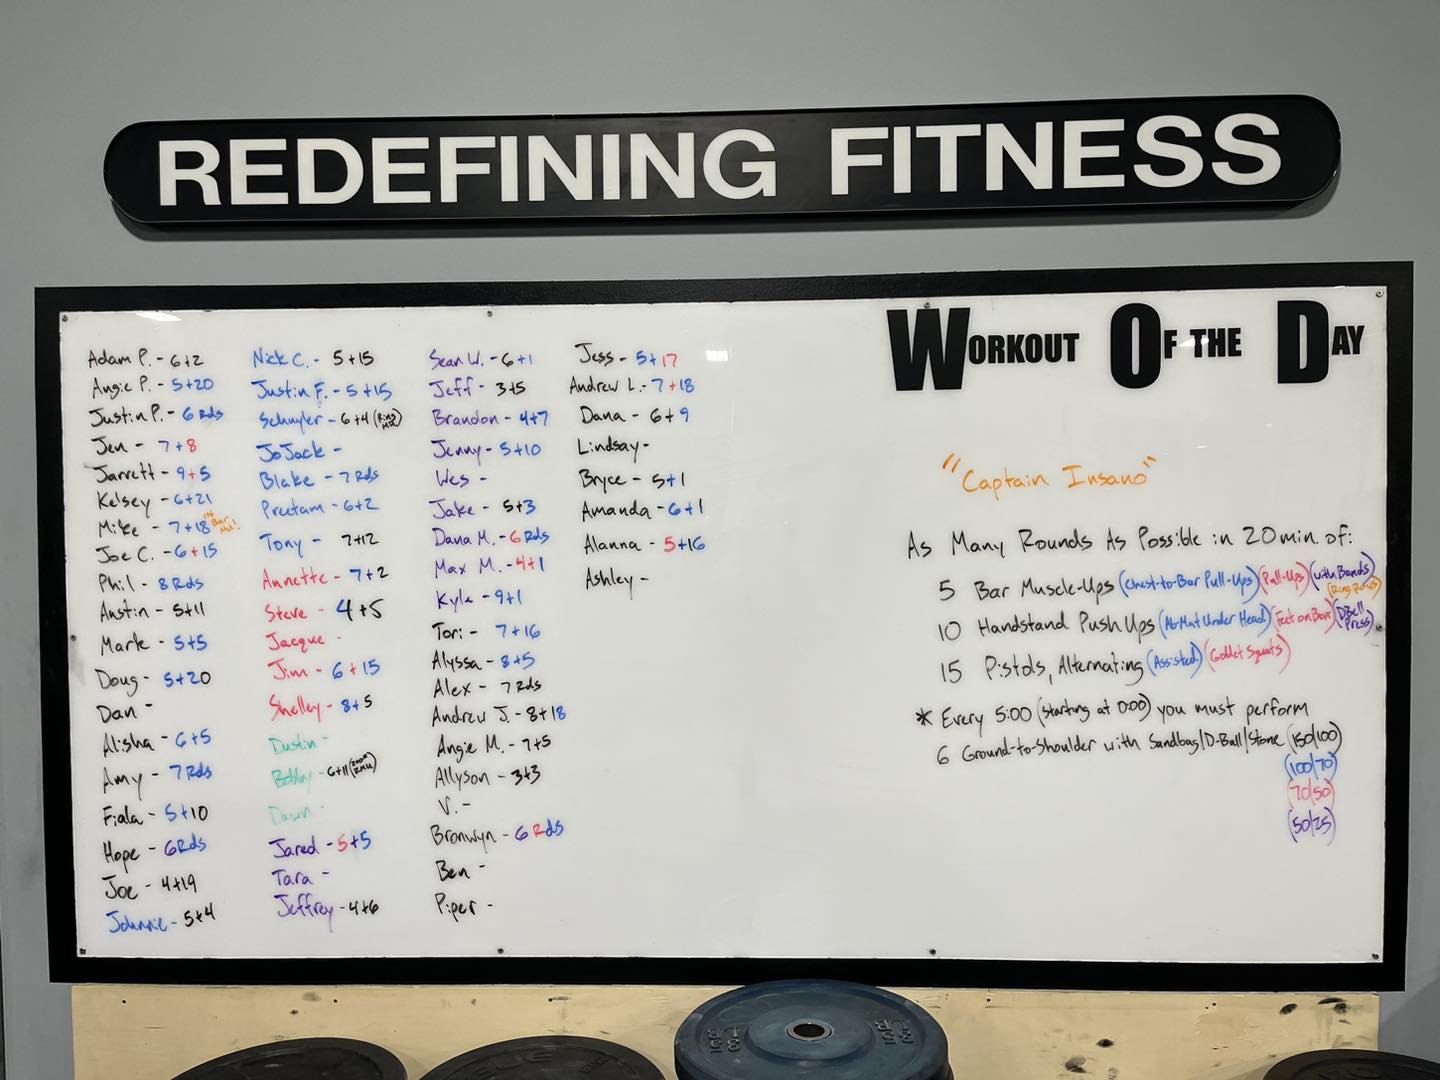 REDEFINING FITNESS
WORKOUT OF THE DAY
Adam P. - 6+2
Angie P. - 5+20
Justin P. - 6 Rds
Jen - 7+8
Jarrett - 9+5
Kelsey - 6+21
Mike - 7+18
Joe C. - 6+15
Phil - 8 Rds
Austin - 5+11
Mark - 5+5
Doug - 5+20
Dan -
Alisha - 6+5
Amy - 7 Rds
Fiala - 5+10
Hope - 6 Rds
Joe - 4+19
Johnnie - 5+4
Nick C. - 5+15
Justin F. - 5+15
Schuyler - 6+4 (Ring MU)
JoJack -
Blake - 7 Rds
Preetam - 6+2
Tony - 7+12
Annette - 7+2
Steve - 4+5
Jacque -
Jim - 6+15
Shelley - 8+5
Dustin -
Bobby - 6+11
Dawn -
Jared - 5+5
Tara -
Jeffrey - 4+6
Sean W. - 6+1
Jeff - 3+5
Brandon - 4+7
Jenny - 5+10
Wes -
Jake - 5+3
Dana M. - 6 Rds
Max M. - 4+1
Kyle - 9+1
Tori - 7+16
Alyssa - 8+5
Alex - 7 Rds
Andrew J. - 8+18
Angie M. - 7+5
Allyson - 3+3
V. -
Bronwyn - 6 Rds
Ben -
Piper -
Jess - 5+17
Andrew L. - 7+18
Dana - 6+9
Lindsay -
Bryce - 5+1
Amanda - 6+1
Alanna - 5+16
Ashley -
"Captain Insano"
As Many Rounds As Possible in 20 min. of:
5 Bar Muscle-Ups (Chest-to-Bar Pull-Ups) (Pull-Ups) (with Bands)
(Ring Rows)
10 Handstand Push Ups (AbMat Under Head) (Feet on Box) (DBell Press)
15 Pistols, Alternating (Assisted) (Goblet Squats)
* Every 5:00 (starting at 0:00) you must perform
6 Ground-to-Shoulder with Sandbag/D-Ball/Stone (150/100)
(100/70)
(70/50)
(50/25)